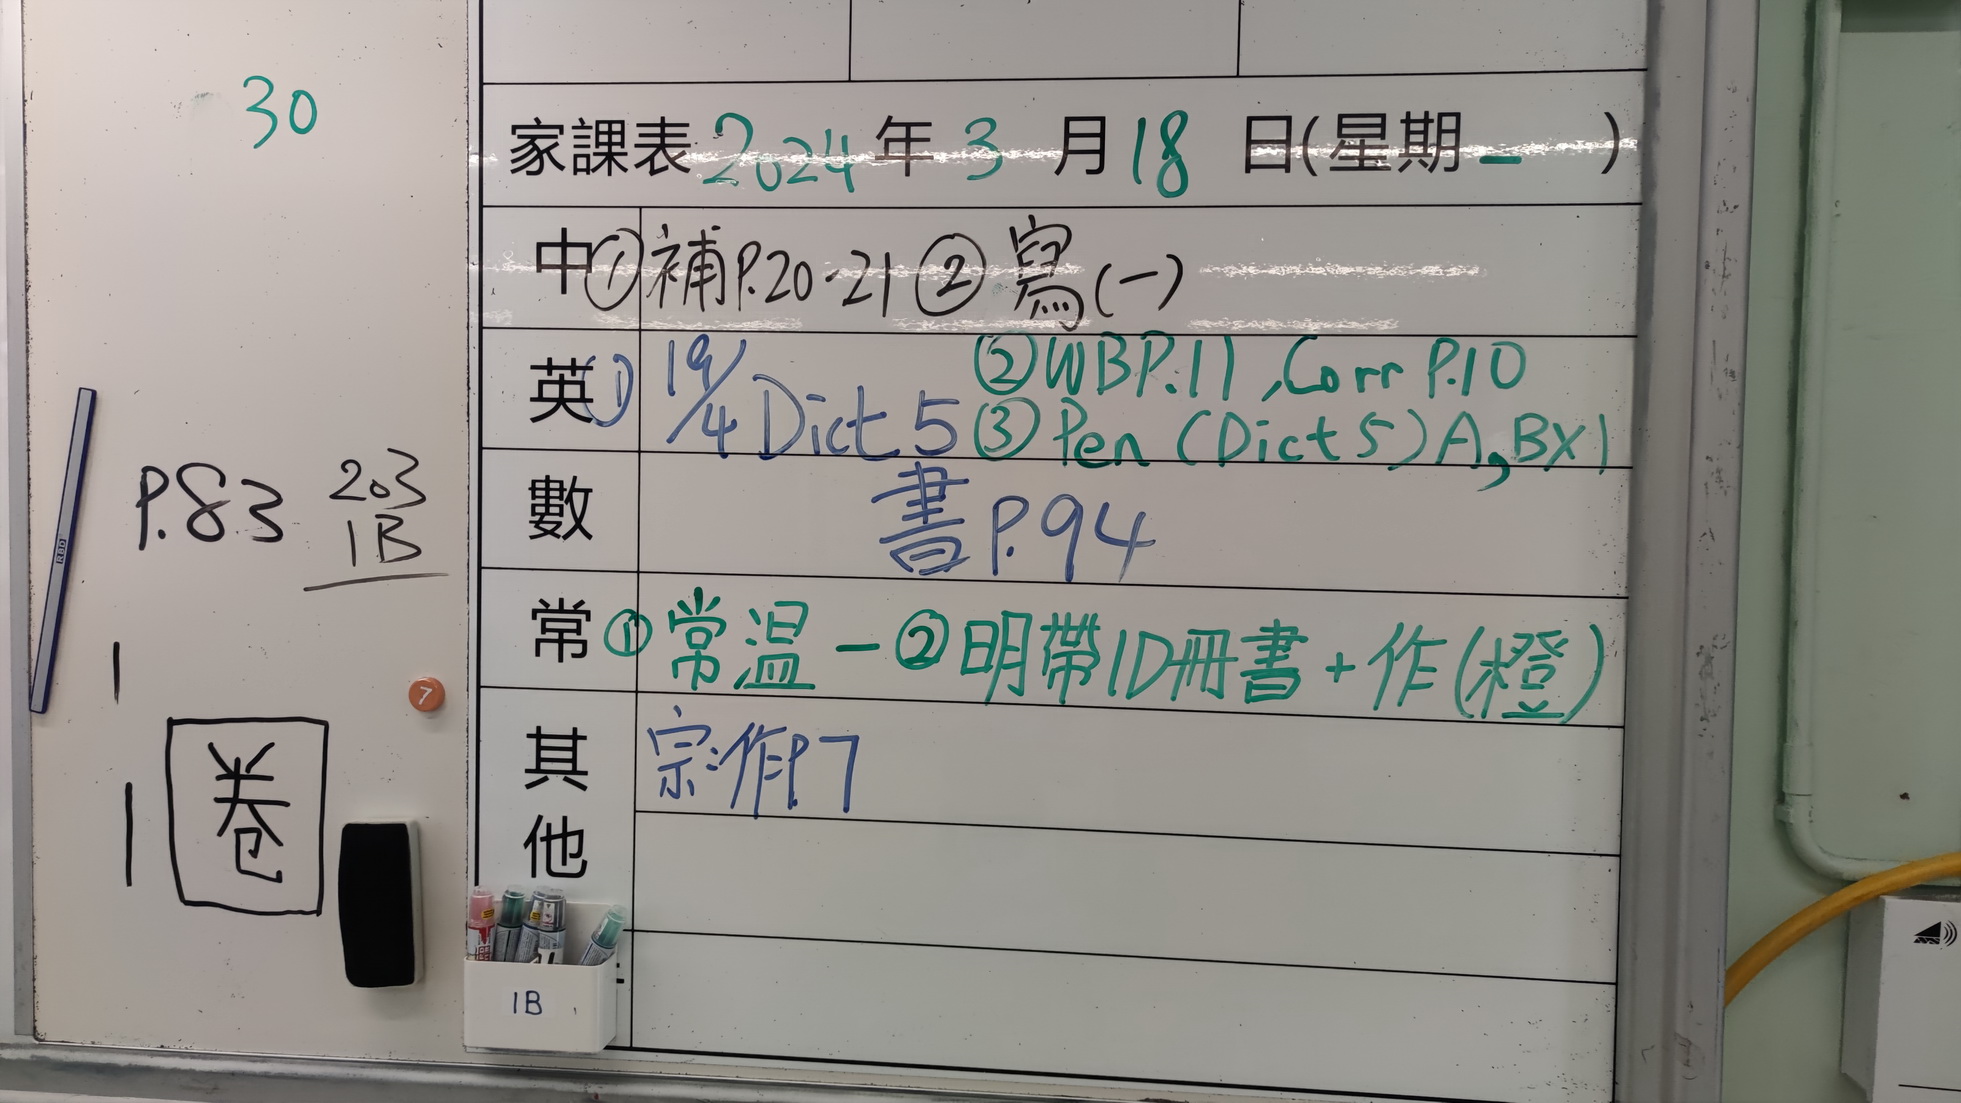 30
P.83
203
1B
卷
7
RBD
家課表 2024 年 3 月 18 日(星期一)
中 ① 補P.20-21 ② 寫(一)
英 ① 19/4 Dict 5 ② WB P.11, Corr P.10
③ Pen (Dict 5) A, B×1
數 書 P.94
常 ① 常温一 ② 明帶1D冊書+作(橙)
其他 宗:作P.7
1B